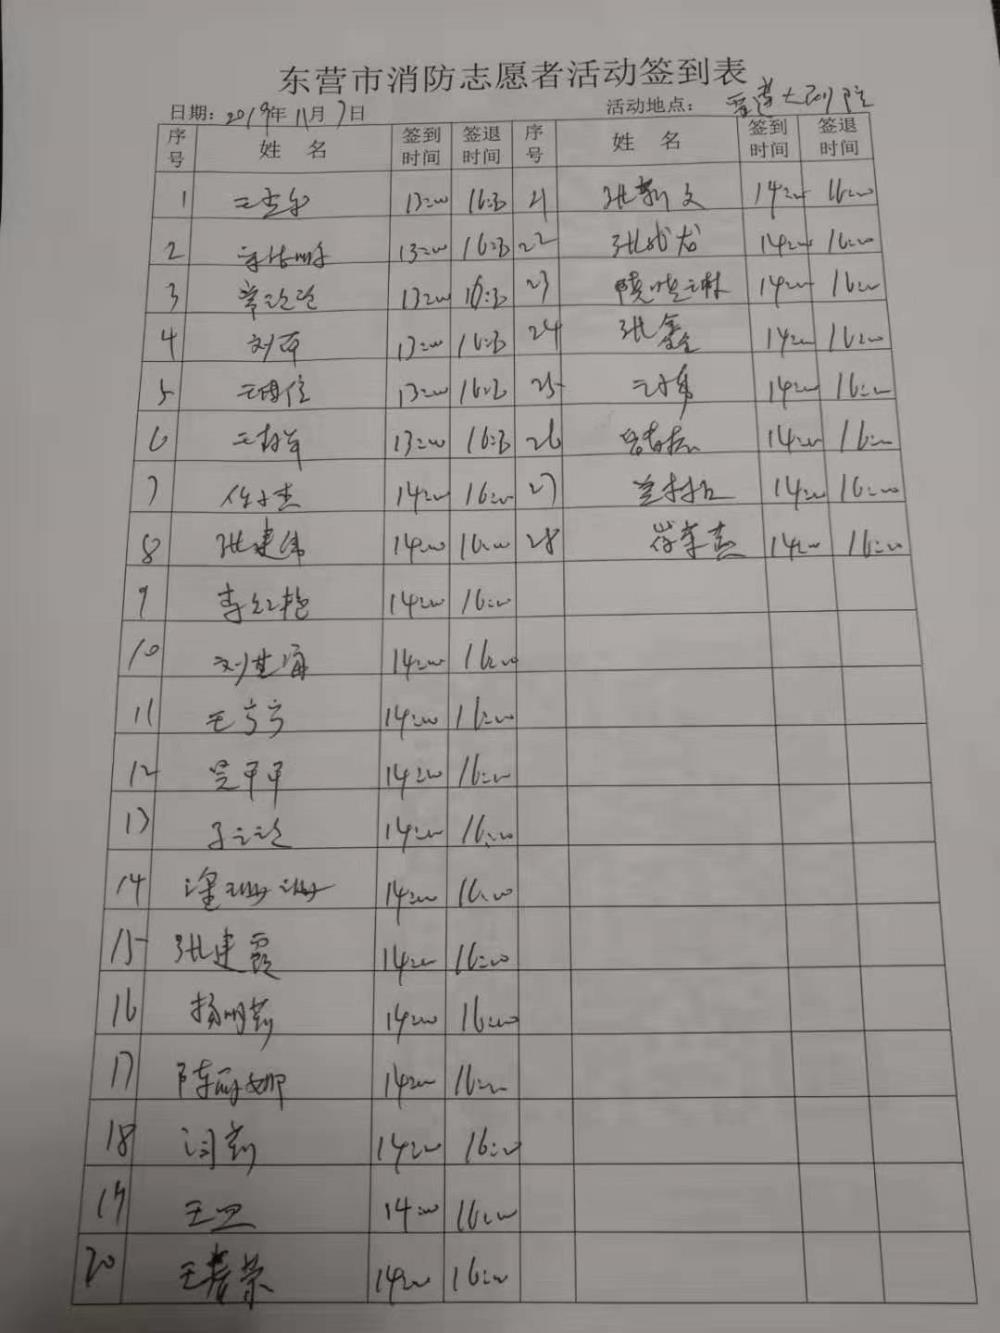 东营市消防志愿者活动签到表
日期：2019年11月7日 活动地点：大剧院
序号 姓名 签到时间 签退时间 序号 姓名 签到时间 签退时间
1 13:00 16:30 21 张新文 14:00 16:00
2 13:00 16:30 22 张成龙 14:00 16:00
3 13:00 16:30 23 14:00 16:00
4 刘军 13:00 16:30 24 张鑫 14:00 16:00
5 13:00 16:30 25 14:00 16:00
6 13:00 16:30 26 14:00 16:00
7 任杰 14:00 16:00 27 14:00 16:00
8 张建伟 14:00 16:00 28 14:00 16:00
9 李红艳 14:00 16:00
10 刘世海 14:00 16:00
11 王亨亨 14:00 16:00
12 吴平平 14:00 16:00
13 14:00 16:00
14 14:00 16:00
15 张建霞 14:00 16:00
16 杨明莉 14:00 16:00
17 陈丽娜 14:00 16:00
18 闫莉 14:00 16:00
19 王卫 14:00 16:00
20 王春荣 14:00 16:00